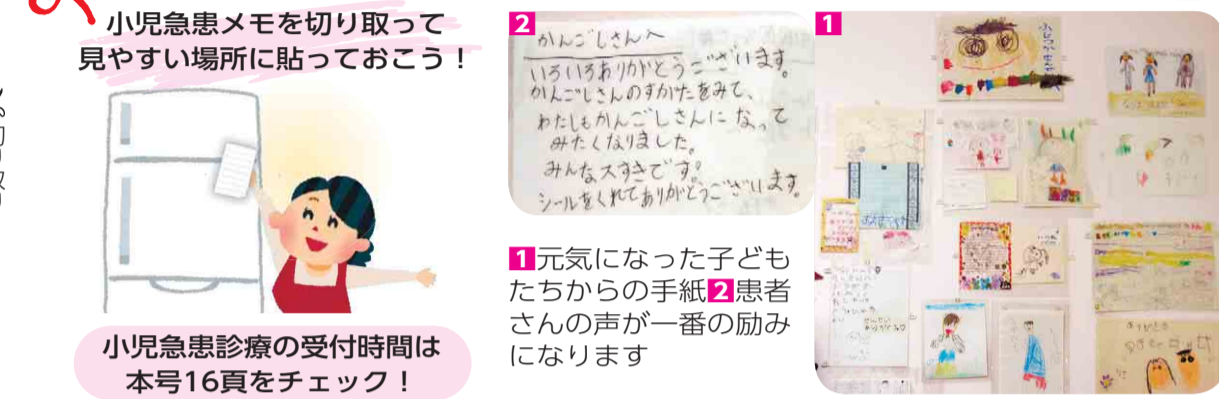 小児急患メモを切り取って
見やすい場所に貼っておこう！
小児急患診療の受付時間は
本号16頁をチェック！
2
かんごしさんへ
いろいろありがとうございます。
かんごしさんのすがたをみて、
わたしもかんごしさんになって
みたくなりました。
みんな大すきです。
シールをくれてありがとうございます。
1元気になった子ども
たちからの手紙2患者
さんの声が一番の励み
になります
1